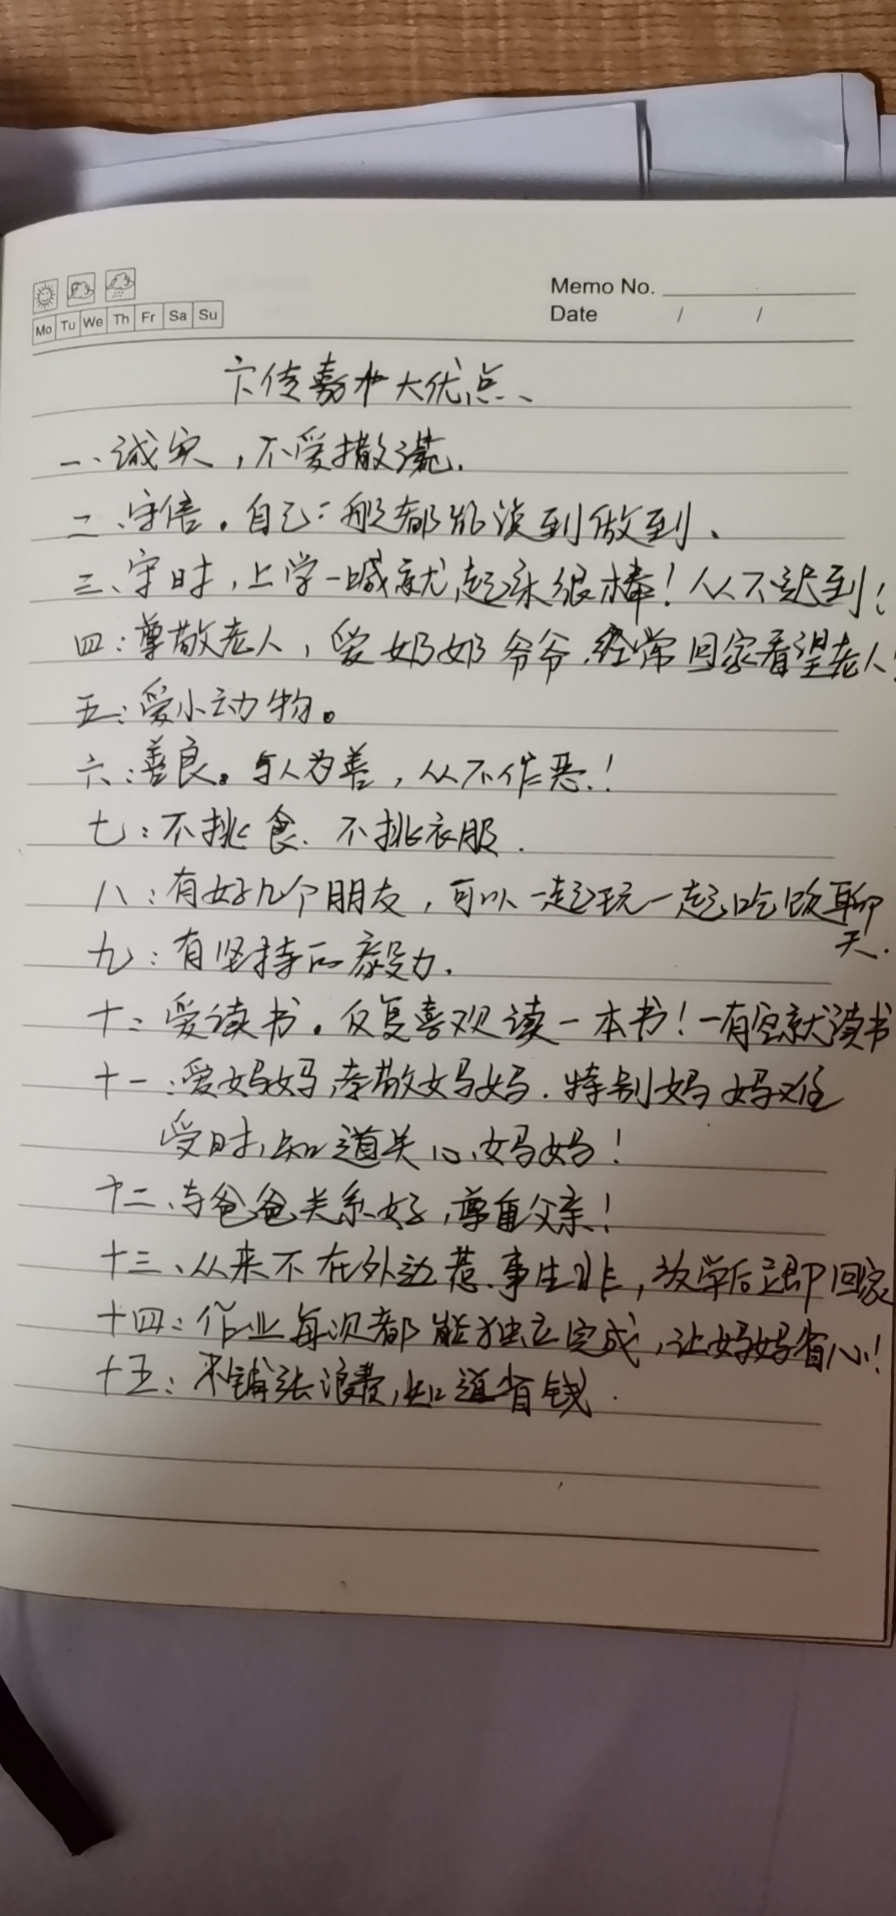 Memo No.
Date / /
Mo Tu We Th Fr Sa Su
卞传嘉十大优点、
一、诚实，不爱撒谎.
二、守信。自己一般都能说到做到、
三、守时，上学一喊就起床很棒！从不迟到！
四：尊敬老人，爱奶奶爷爷.经常回家看望老人！
五：爱小动物。
六：善良。与人为善，从不作恶.！
七：不挑食.不挑衣服.
八：有好几个朋友，可以一起玩一起吃饭聊
天.
九：有坚持的毅力.
十：爱读书。反复喜欢读一本书！一有空就读书
十一：爱妈妈,孝敬妈妈.特别妈妈难
受时,知道关心妈妈！
十二、与爸爸关系好,尊重父亲！
十三、从来不在外边惹事生非,放学后立即回家
十四：作业每次都能独立完成,让妈妈省心！
十五：不铺张浪费,知道省钱.